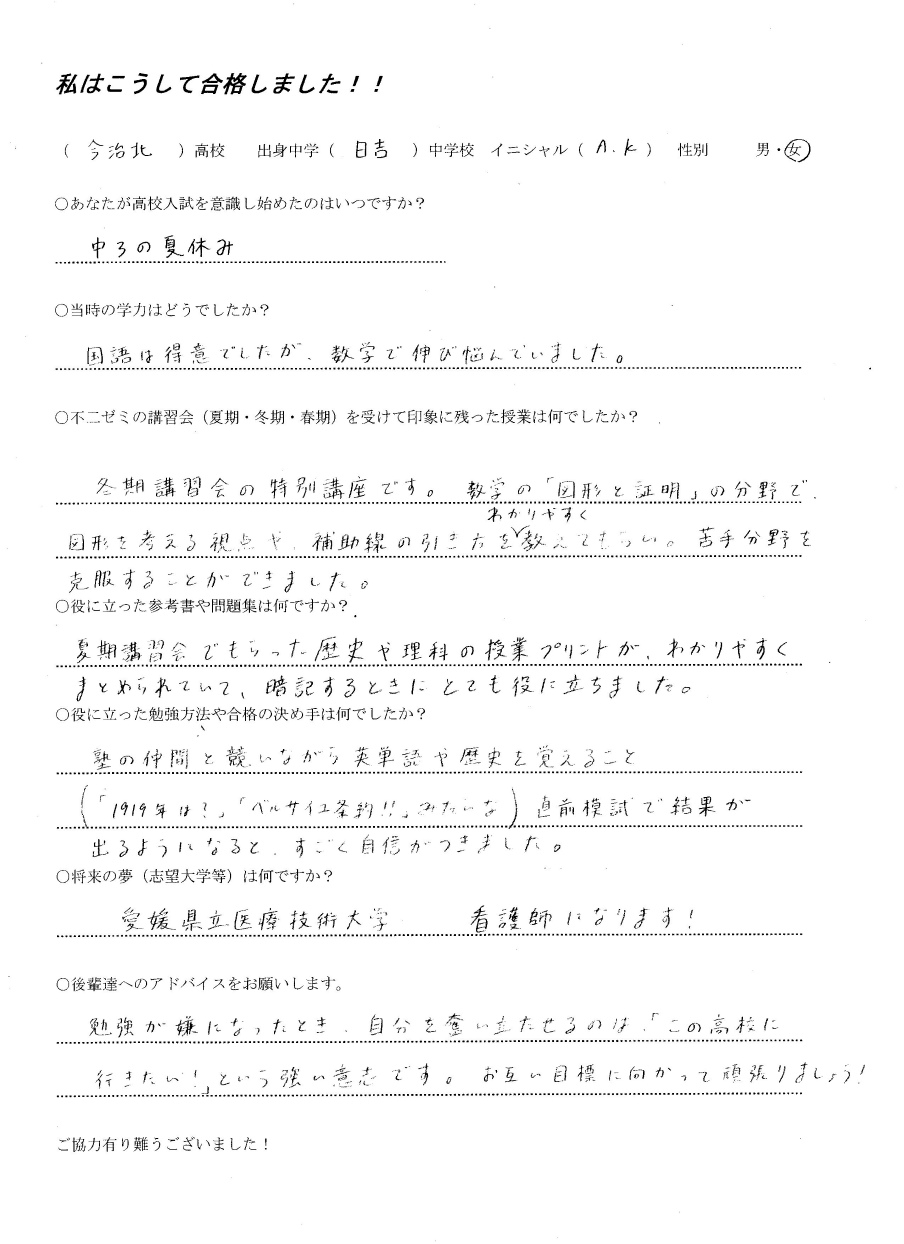 私はこうして合格しました！！
（ 今治北 ）高校　出身中学（ 日吉 ）中学校　イニシャル（ A.K ）　性別　男・女
○あなたが高校入試を意識し始めたのはいつですか？
中3の夏休み
○当時の学力はどうでしたか？
国語は得意でしたが、数学で伸び悩んでいました。
○不二ゼミの講習会（夏期・冬期・春期）を受けて印象に残った授業は何でしたか？
冬期講習会の特別講座です。数学の「図形と証明」の分野で、
わかりやすく
図形を考える視点や、補助線の引き方を教えてもらい。苦手分野を
克服することができました。
○役に立った参考書や問題集は何ですか？
夏期講習会でもらった歴史や理科の授業プリントが、わかりやすく
まとめられていて、暗記するときにとても役に立ちました。
○役に立った勉強方法や合格の決め手は何でしたか？
塾の仲間と競いながら英単語や歴史を覚えること
（「1919年は？」「ベルサイユ条約!!」みたいな）直前模試で結果が
出るようになると、すごく自信がつきました。
○将来の夢（志望大学等）は何ですか？
愛媛県立医療技術大学　看護師になります！
○後輩達へのアドバイスをお願いします。
勉強が嫌になったとき、自分を奮い立たせるのは、「この高校に
行きたい！」という強い意志です。お互い目標に向かって頑張りましょう！
ご協力有り難うございました！